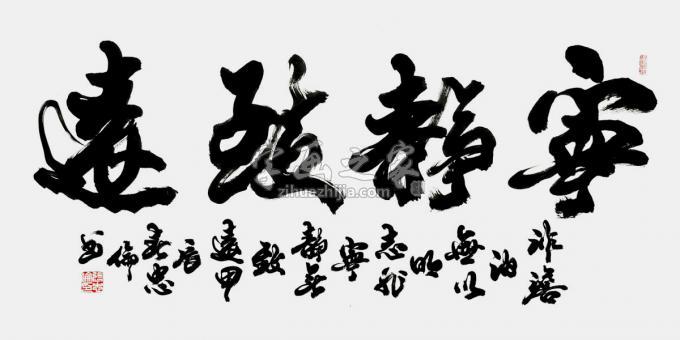 寧靜致遠
非澹泊無以明志非寧靜無以致遠甲辰春忠倫書
字画之家
zihuazhijia.com